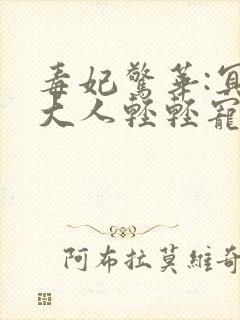 毒妃驚華:冥
大人輕輕寵
阿布拉莫維奇